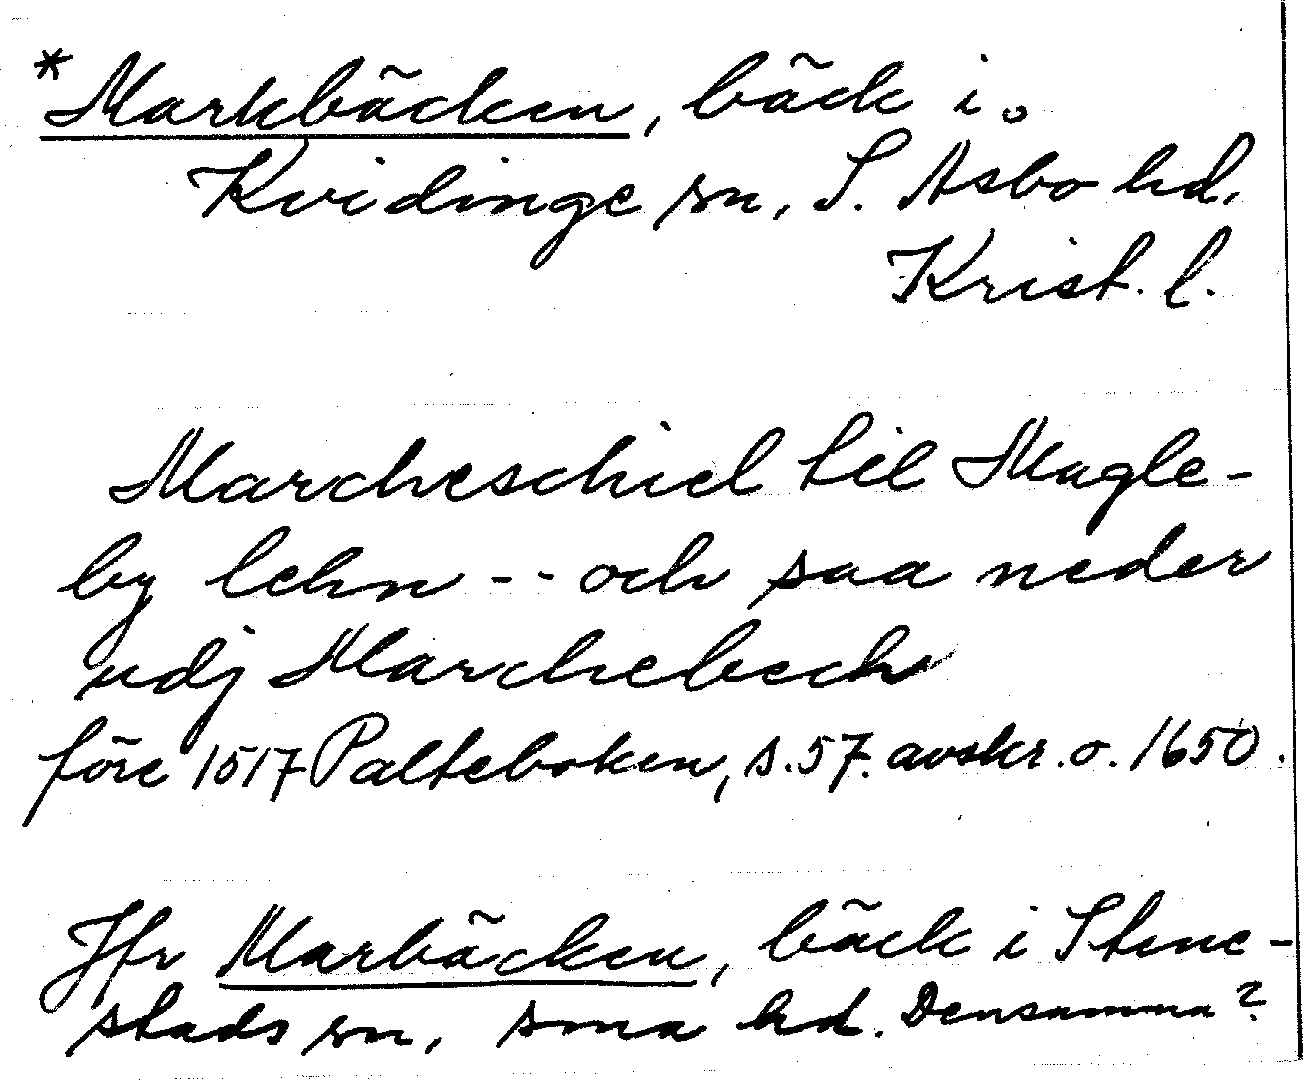 *Markbäcken, bäck i
Kvidinge sn, S. Åsbo hd,
Krist. l.
Marcheschiel til Magle-
by lehn -- och saa neder
udj Marchebech
före 1517 Palteboken, s. 57. avskr. o. 1650.
Jfr Marbäcken, bäck i Stene-
stads sn, sma hd. Densamma?